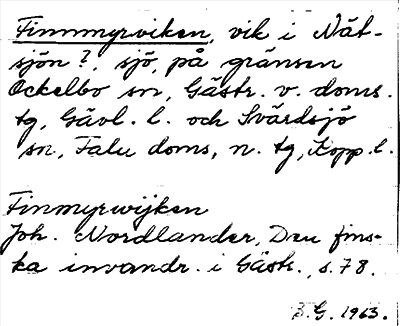 Finnmyrviken, vik i Nät-
sjön?, sjö, på gränsen
Ockelbo sn, Gästr. v. doms.
tg, Gävl. l. och Svärdsjö
sn, Falu doms, n. tg, Kopp. l.
Finmyrwijken
Joh. Nordlander, Den fins-
ka invandr. i Gästr., s. 78.
B.G. 1963.